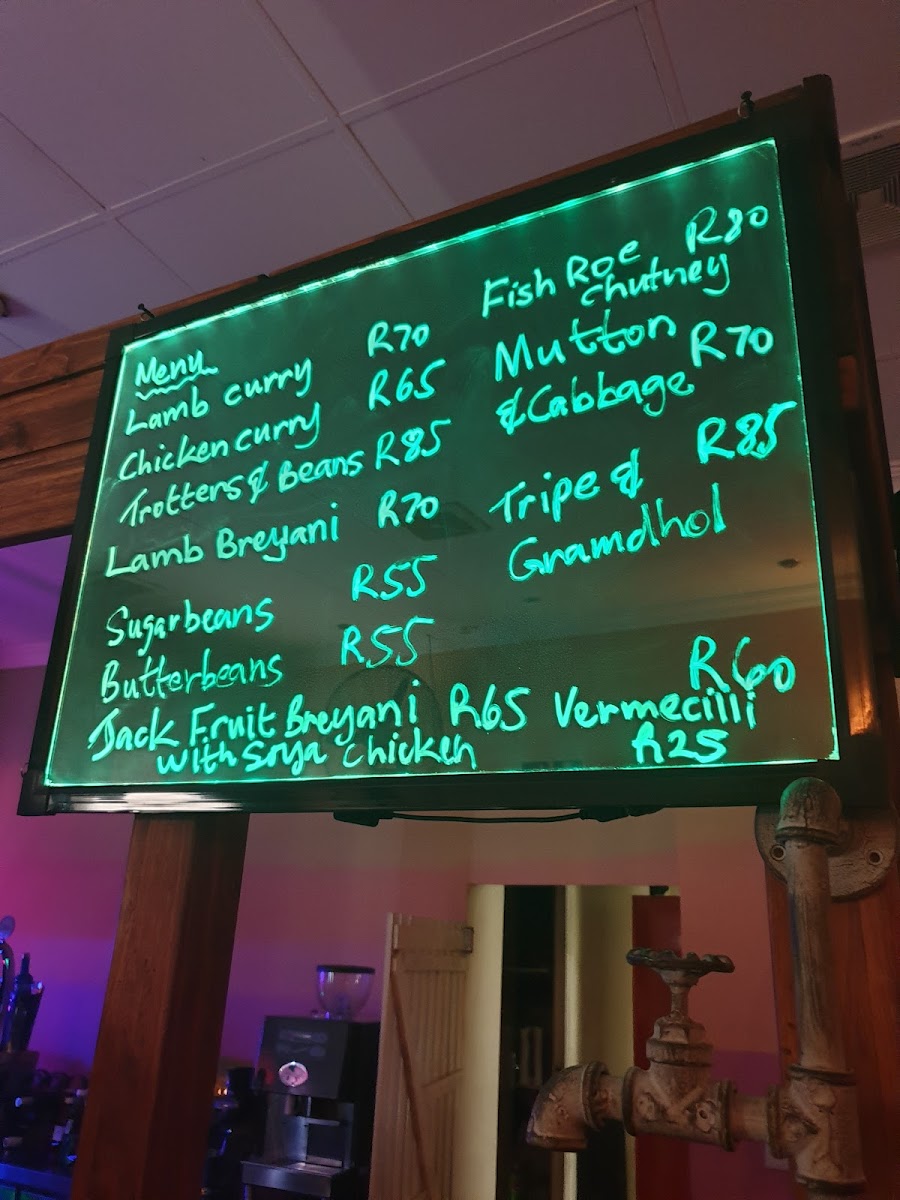 Menu
Lamb curry R70
Chicken curry R65
Trotters & Beans R85
Lamb Breyani R70
Sugarbeans R55
Butterbeans R55
Jack Fruit Breyani R65
with Soya Chicken
Fish Roe R80
chutney
Mutton R70
& Cabbage
Tripe & R85
Gramdhol
R60
Vermecilli
R25